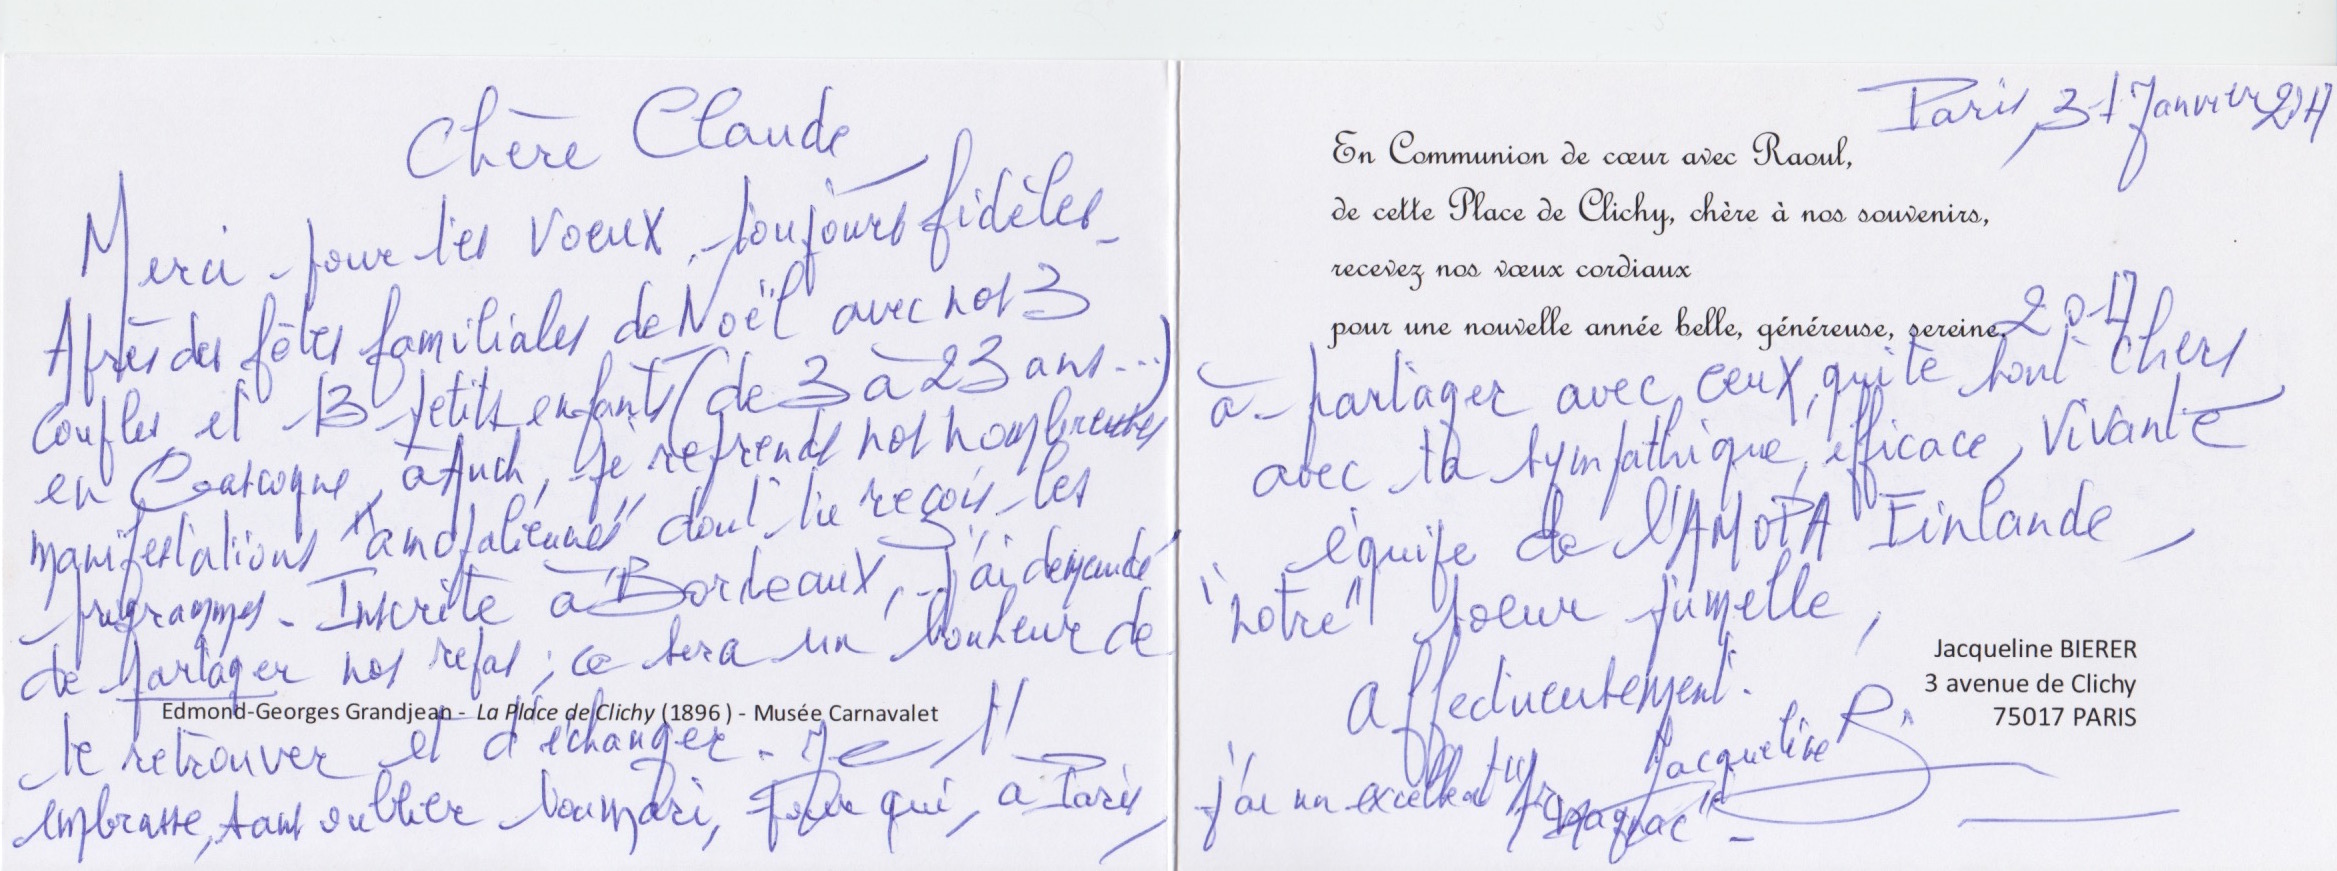 Chère Claude
Merci pour tes voeux, toujours fidèles -
Après des fêtes familiales de Noël avec nos 3
couples et 13 petits enfants (de 3 à 23 ans...)
en Gascogne, à Auch, je reprends nos nombreuses
manifestations "amopaliennes" dont tu reçois les
programmes - Inscrite à Bordeaux, j'ai demandé
de partager nos repas ; ce sera un bonheur de
Edmond-Georges Grandjean - La Place de Clichy (1896 ) - Musée Carnavalet
te retrouver et d'échanger - Je t'
embrasse, sans oublier ton mari, pour qui, à Paris,
Paris, 31 Janvier 2017
En Communion de cœur avec Raoul,
de cette Place de Clichy, chère à nos souvenirs,
recevez nos vœux cordiaux
pour une nouvelle année belle, généreuse, sereine, 2017
à partager avec ceux qui te sont chers
avec ta sympathique, efficace, vivante
équipe de l'AMOPA Finlande,
"notre" soeur jumelle,
Affectueusement.
Jacqueline B.
Jacqueline BIERER
3 avenue de Clichy
75017 PARIS
j'ai un excellent "Armagnac" -